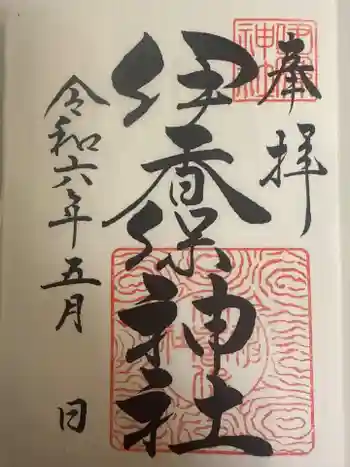 奉拝
伊香保神社
令和六年五月 日